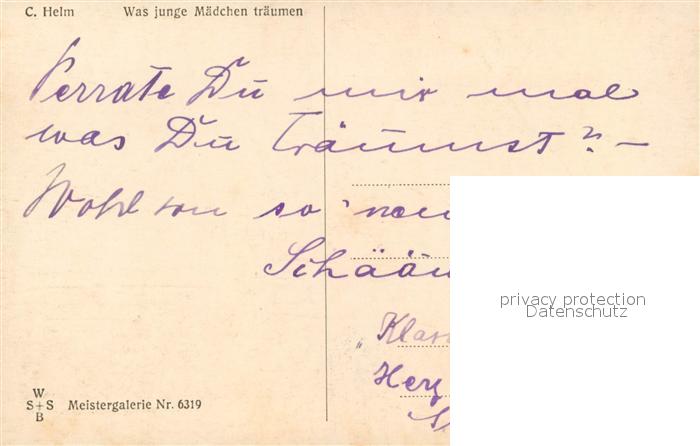 C. Helm Was junge Mädchen träumen
Verrate Du mir mal
was Du träumst? —
Wohl von so 'nen
Schään
"Klas
Herz
privacy protection
Datenschutz
W
S+S
B
Meistergalerie Nr. 6319